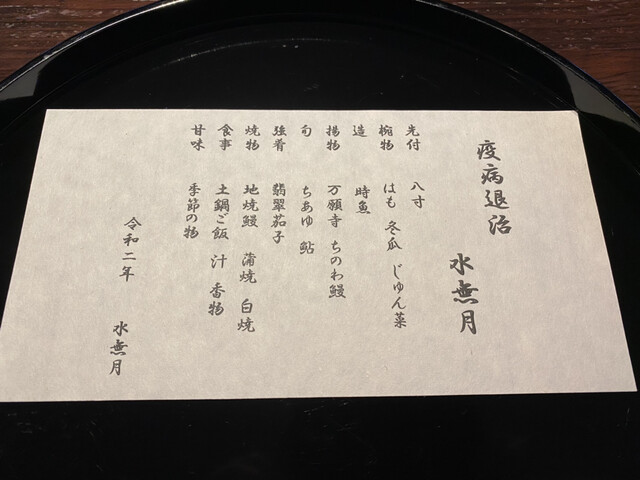 疫病退治
水無月
先付 八寸
椀物 はも 冬瓜 じゅん菜
造 時魚
揚物 万願寺 ちのわ鰻
旬 ちあゆ 鮎
強肴 翡翠茄子
焼物 地焼鰻 蒲焼 白焼
食事 土鍋ご飯 汁 香物
甘味 季節の物
令和二年 水無月